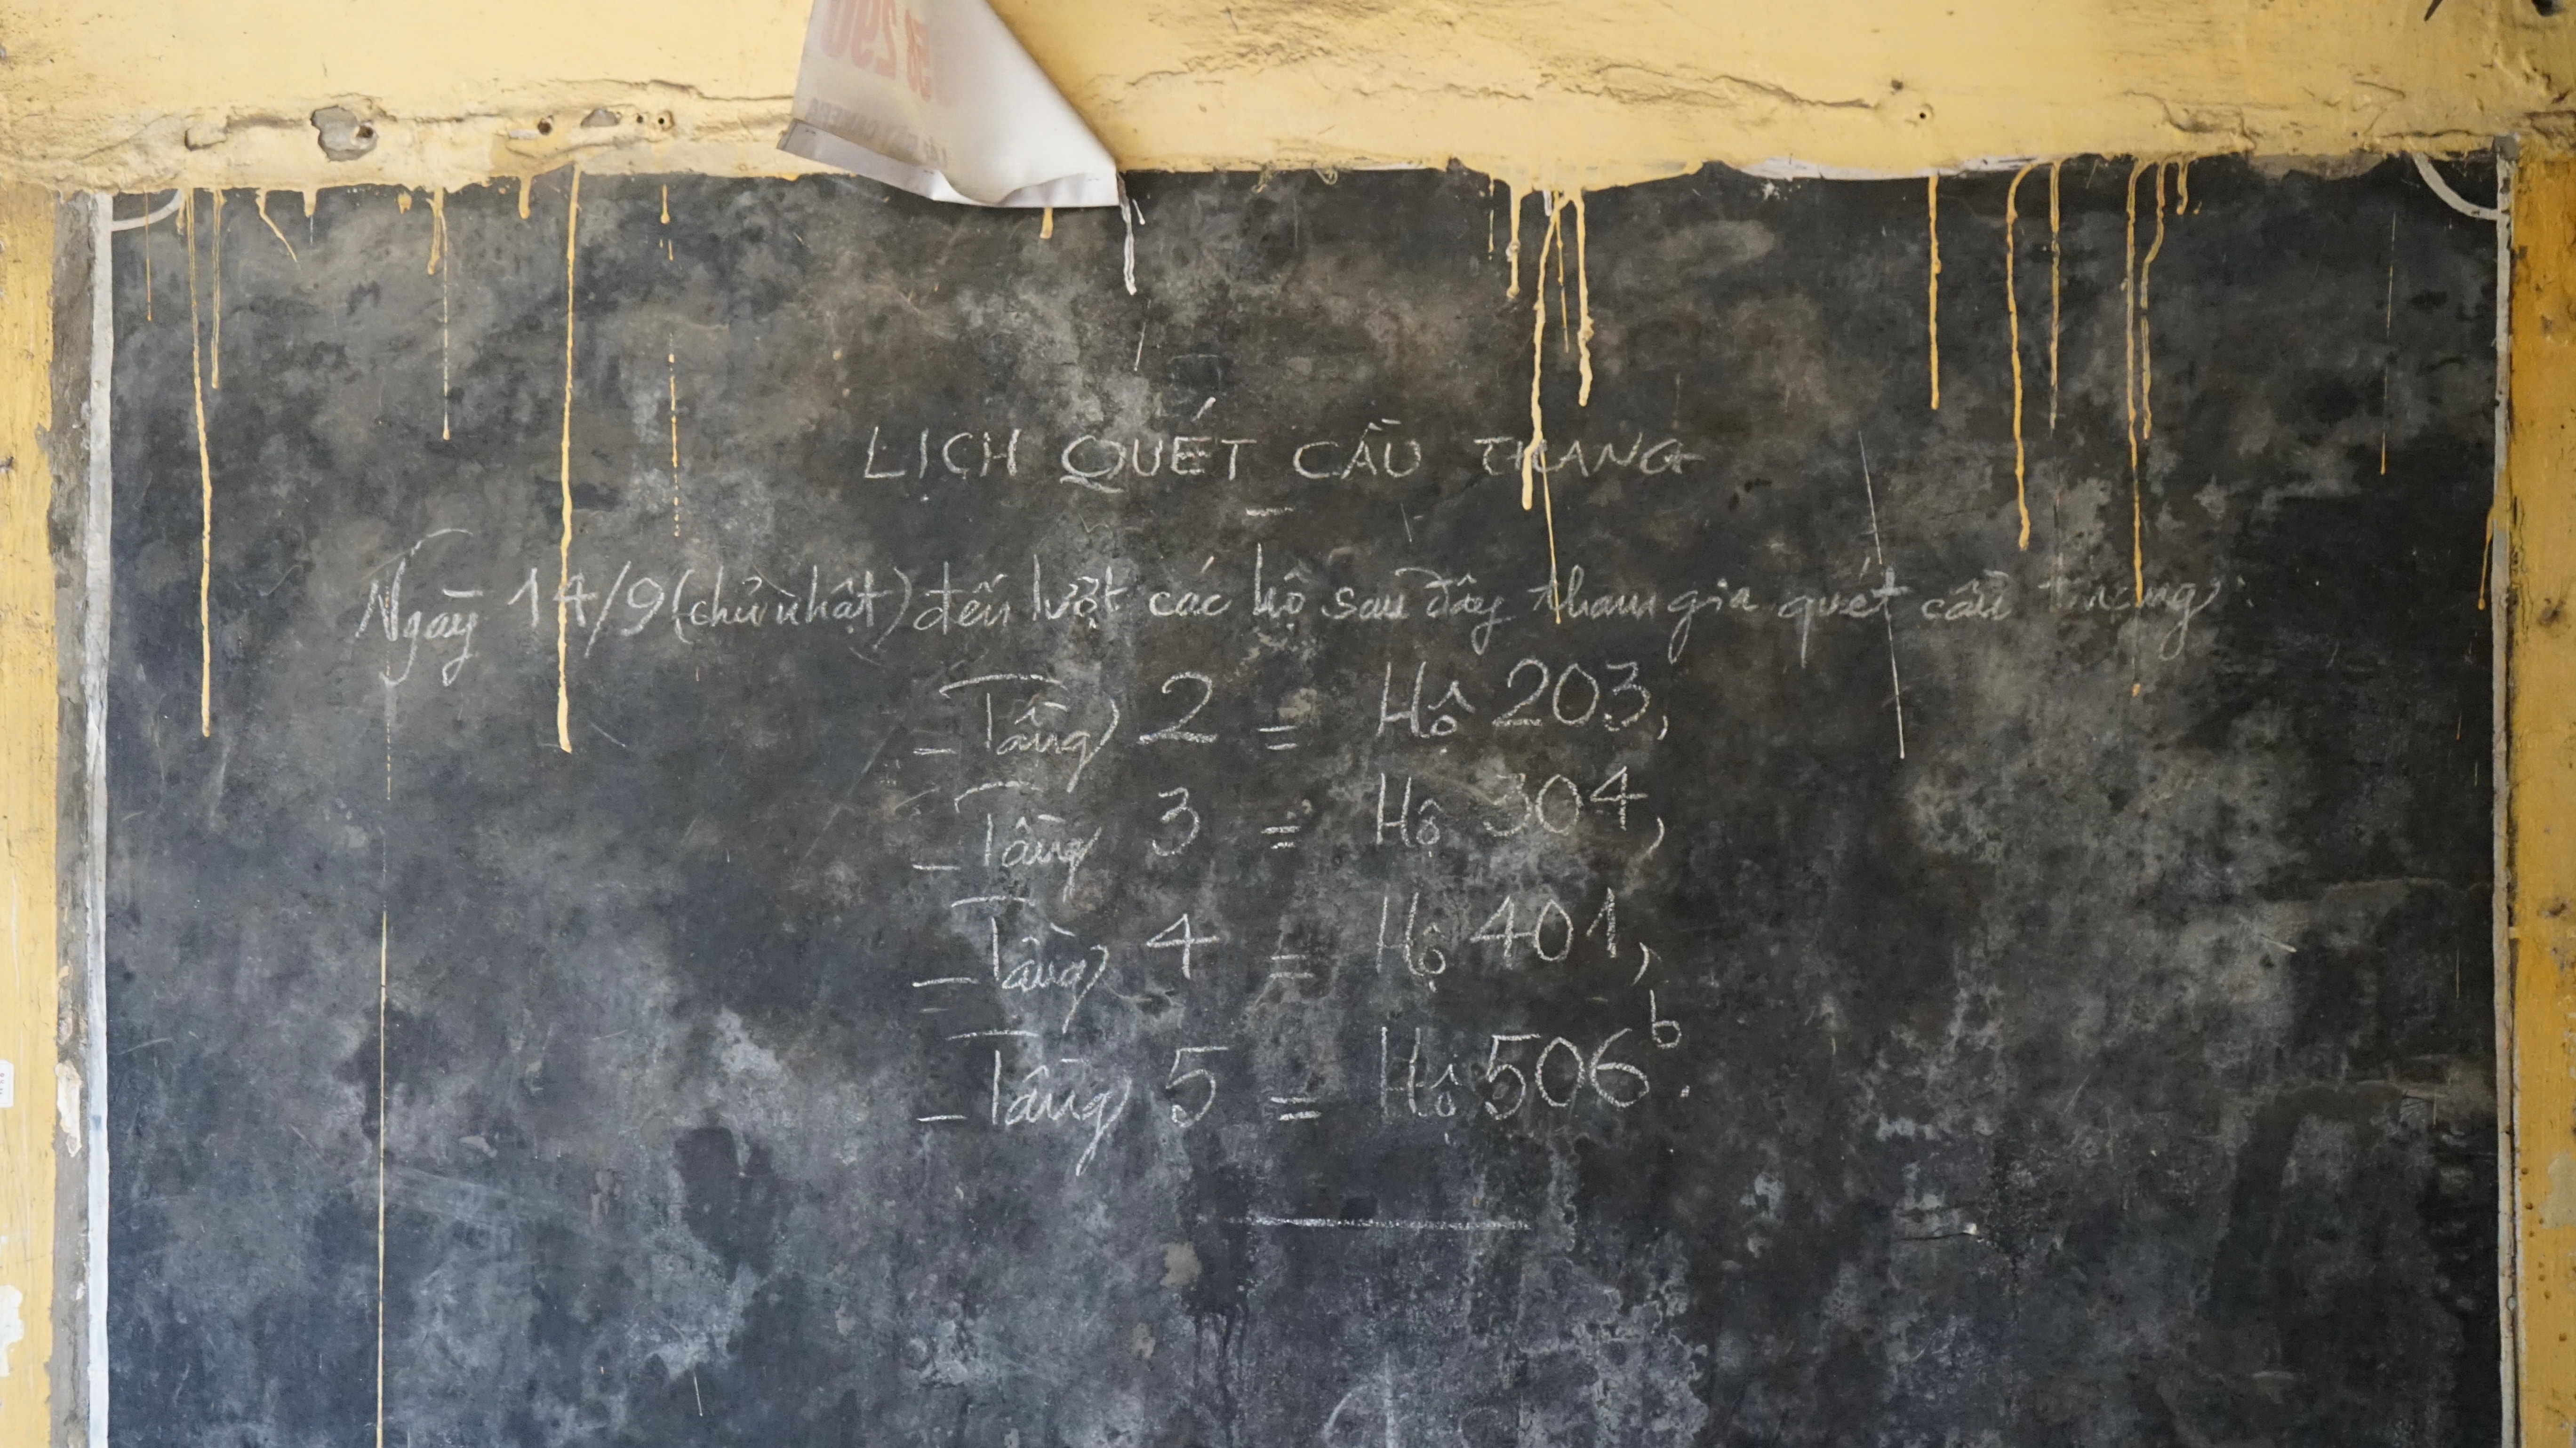 58 290
LỊCH QUÉT CẦU THANG
Ngày 14/9 (chủ nhật) đến lượt các hộ sau đây tham gia quét cầu thang:
- Tầng 2 = Hộ 203,
- Tầng 3 = Hộ 304,
- Tầng 4 = Hộ 401,
- Tầng 5 = Hộ 506b.